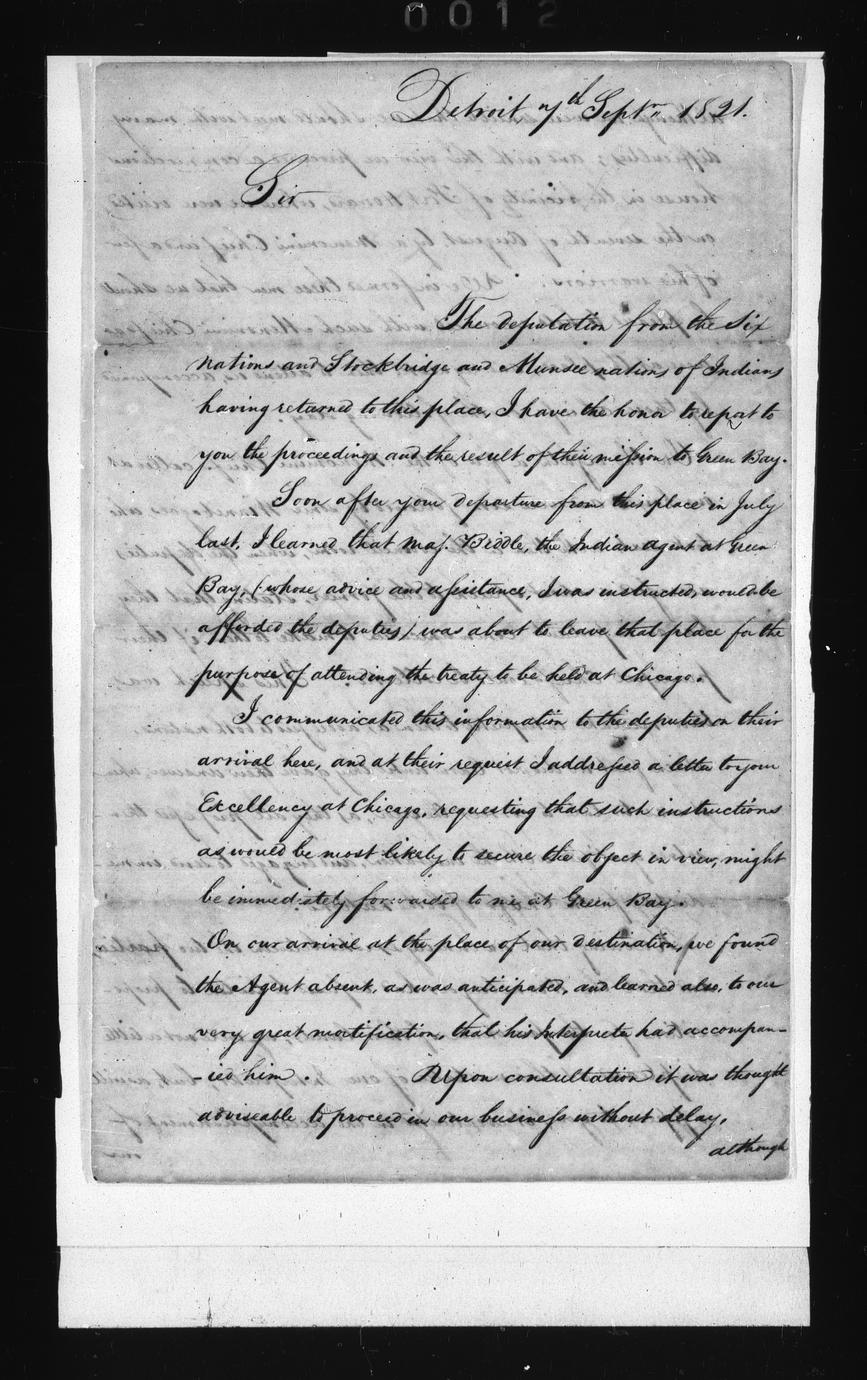 0012
Detroit 7th Septr. 1821.
Sir
The deputation from the Six
nations and Stockbridge and Munsee nations of Indians
having returned to this place, I have the honor to report to
you the proceedings and the result of their mission to Green Bay.
Soon after your departure from this place in July
last, I learned that Maj. Biddle, the Indian agent at Green
Bay, (whose advice and assistance, I was instructed, would be
afforded the deputies) was about to leave that place for the
purpose of attending the treaty to be held at Chicago.
I communicated this information to the deputies on their
arrival here, and at their request I addressed a letter to your
Excellency at Chicago, requesting that such instructions
as would be most likely to secure the object in view, might
be immediately forwarded to me at Green Bay.
On our arrival at the place of our destination, we found
the Agent absent, as was anticipated, and learned also, to our
very great mortification, that his Interpreter had accompan-
-ied him. Upon consultation it was thought
adviseable to proceed in our business without delay,
although